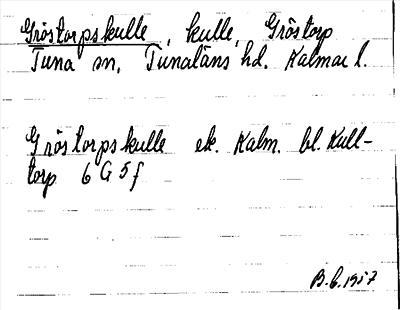 Gröstorpskulle, kulle, Gröstorp
Tuna sn, Tunaläns hd. Kalmar l.
Gröstorpskulle ek. Kalm. bl. Kull-
torp 6 G 5 f
B.C. 1957